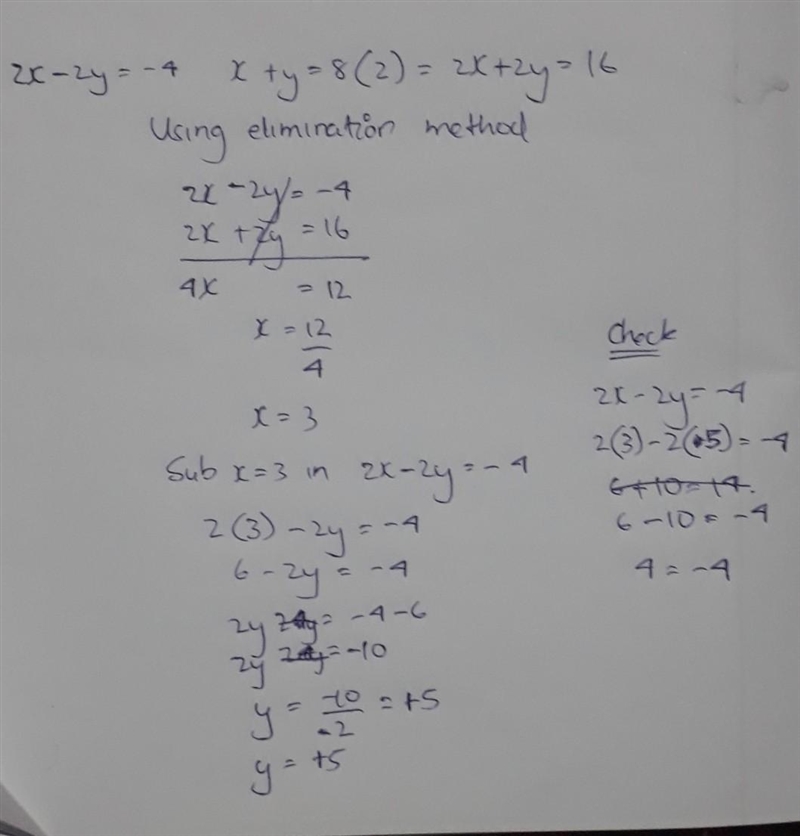 2x - 2y = -4 x + y = 8 (2) = 2x + 2y = 16
Using elimination method
2x - 2y = -4
2x + 2y = 16
4x = 12
x = 12/4
x = 3
Sub x = 3 in 2x - 2y = -4
2(3) - 2y = -4
6 - 2y = -4
2y = -4 - 6
2y = -10
y = -10/-2 = +5
y = +5
Check
2x - 2y = -4
2(3) - 2(5) = -4
6 + 10 = 14.
6 - 10 = -4
4 = -4